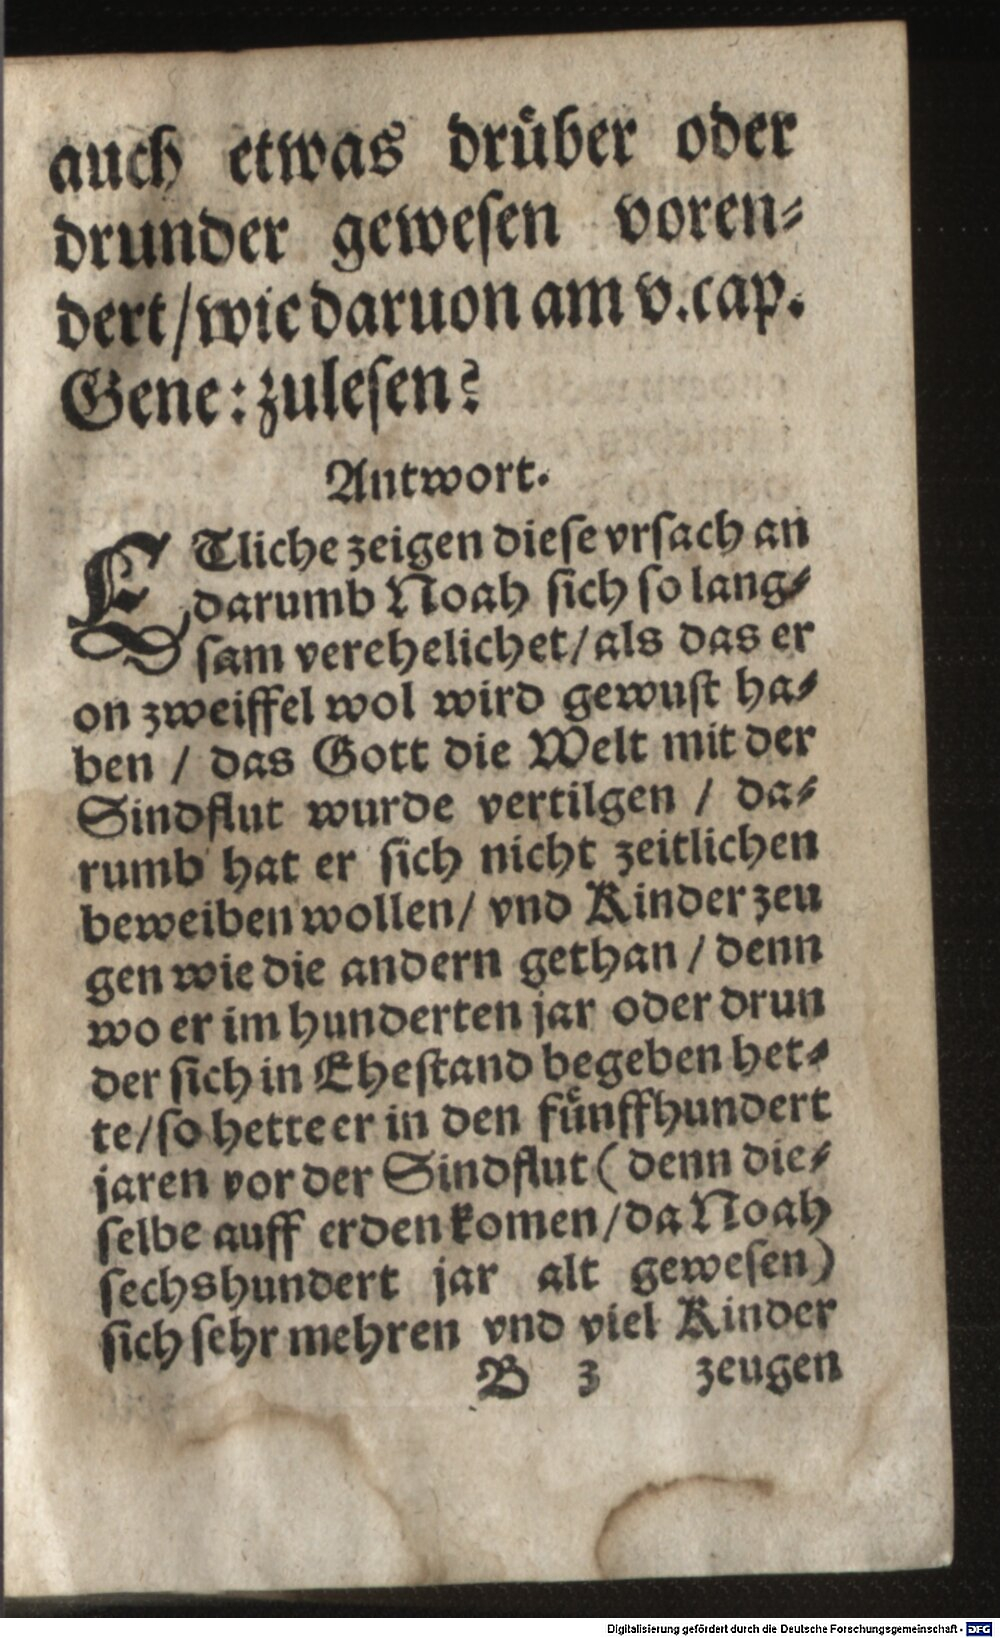 auch etwas drüber oder
drunder gewesen voren-
dert/wie daruon am v.cap.
Gene: zulesen?
Antwort.
ETliche zeigen diese vrsach an
darumb Noah sich so lang-
sam verehelichet/als das er
on zweiffel wol wird gewust ha-
ben / das Gott die Welt mit der
Sindflut wurde vertilgen / da-
rumb hat er sich nicht zeitlichen
beweiben wollen/ vnd Kinder zeu
gen wie die andern gethan / denn
wo er im hunderten jar oder drun
der sich in Ehestand begeben het-
te/so hette er in den fünffhundert
jaren vor der Sindflut (denn die-
selbe auff erden komen/da Noah
sechshundert jar alt gewesen)
sich sehr mehren vnd viel Kinder
B 3 zeugen
Digitalisierung gefördert durch die Deutsche Forschungsgemeinschaft - DFG